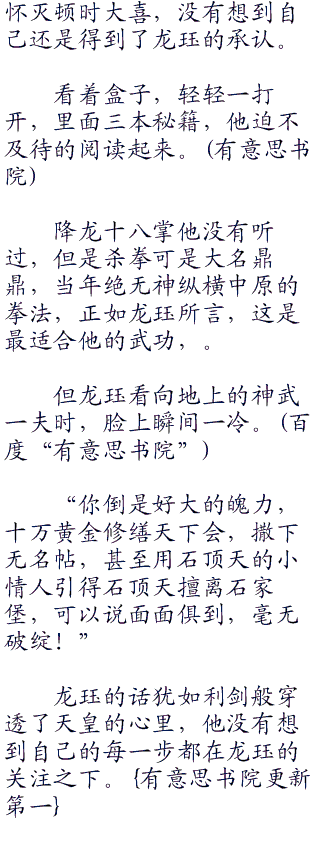 怀灭顿时大喜，没有想到自
己还是得到了龙珏的承认。
看着盒子，轻轻一打
开，里面三本秘籍，他迫不
及待的阅读起来。（有意思书
院）
降龙十八掌他没有听
过，但是杀拳可是大名鼎
鼎，当年绝无神纵横中原的
拳法，正如龙珏所言，这是
最适合他的武功，。
但龙珏看向地上的神武
一夫时，脸上瞬间一冷。（百
度“有意思书院”）
“你倒是好大的魄力，
十万黄金修缮天下会，撒下
无名帖，甚至用石顶天的小
情人引得石顶天擅离石家
堡，可以说面面俱到，毫无
破绽！”
龙珏的话犹如利剑般穿
透了天皇的心里，他没有想
到自己的每一步都在龙珏的
关注之下。{有意思书院更新
第一}